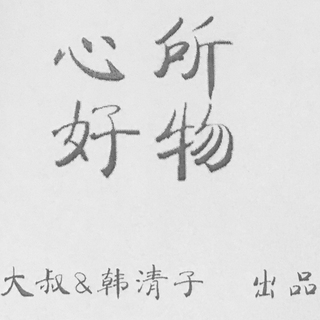 心所
好物
大叔&韩清子 出品